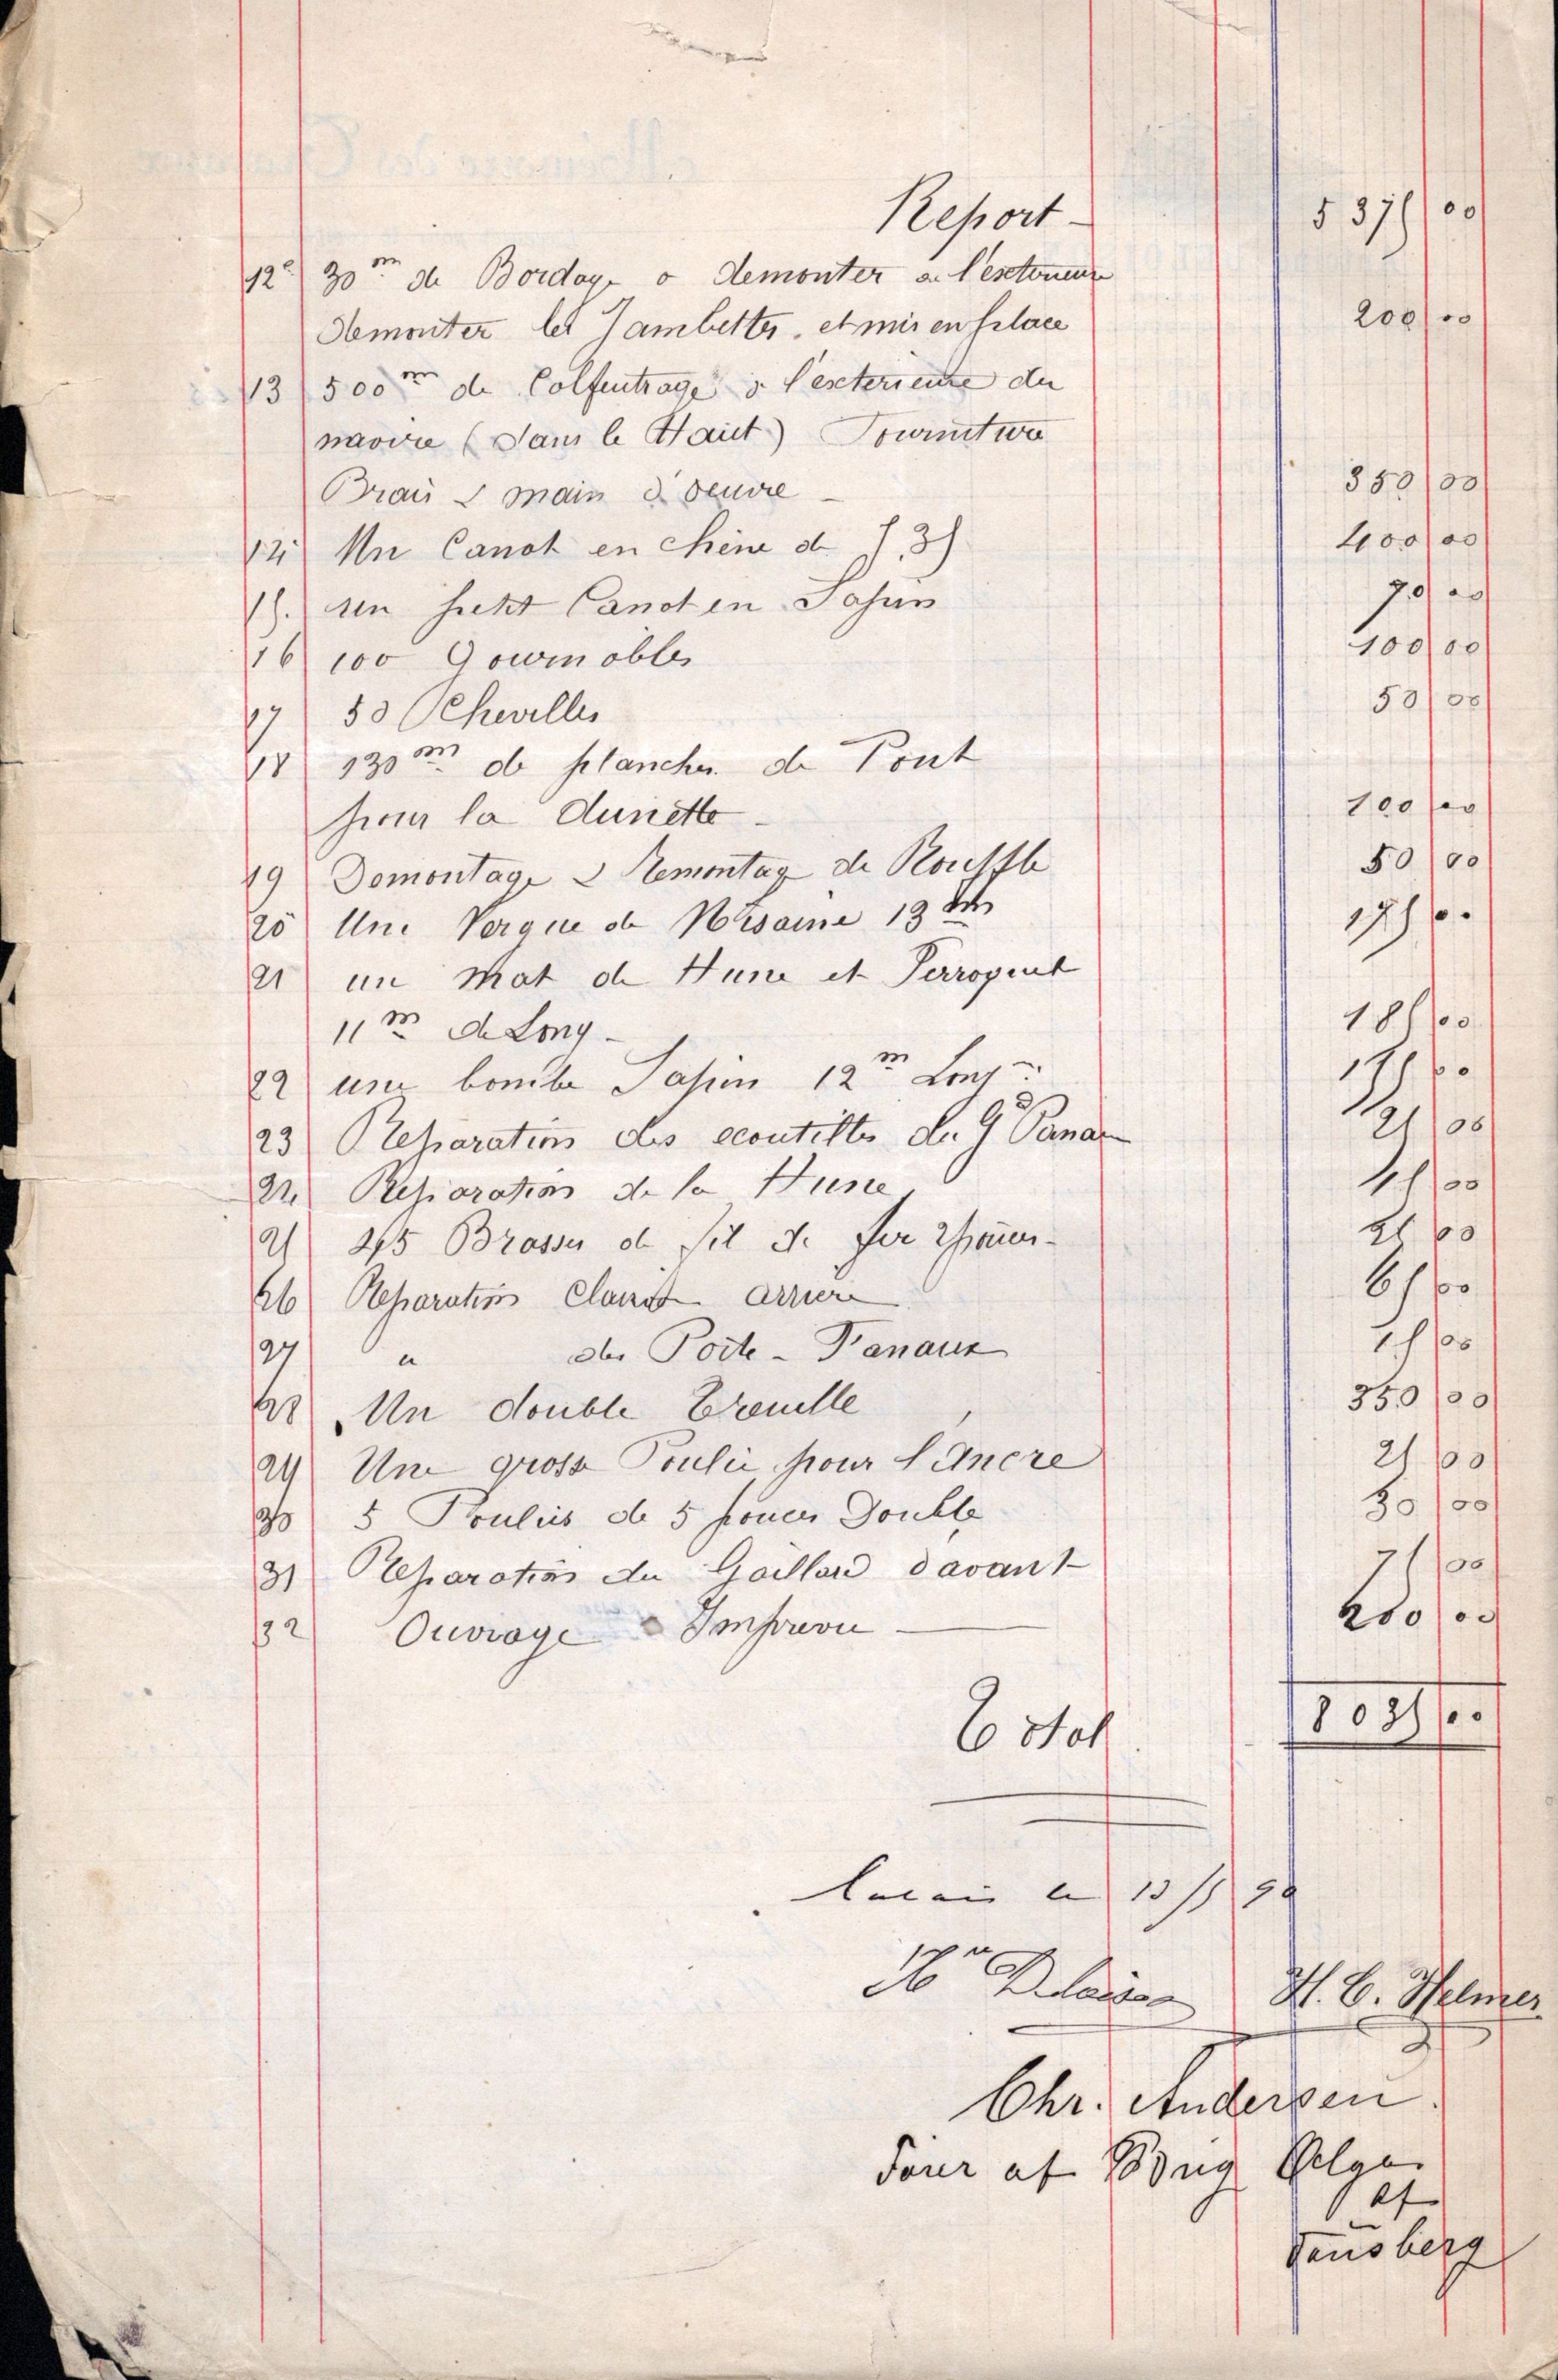 Report - 5375 00
12° 30m de Bordage a demonter a l'exterieure
demonter les Jambettes. et mis en place 200 00
13 500m de Calfeutrage a l'exterieure du
navire (dans le Haut) Fourniture
Brais & main d'oeuvre - 350 00
14 Un Canot en chêne de 5.35 400 00
15. un petit Canot en Sapin 70 00
16 100 Gournables 100 00
17 50 Chevilles 50 00
18 130m de planches de Pont
pour la dunette - 100 00
19 Demontage & Remontage de Rouffle 50 00
20 Une Vergue de Misaine 13m 175 00
21 un Mat de Hune et Perroquet
11m de Long - 185 00
22 une Sapin 12m Long 00
23 Reparation des ecoutilles du Gd Panneau 00
24 Reparation de la Hune 00
25 45 Brasses de fil de fer 2 pouces - 25 00
26 Reparation arriere 65 00
27 " des Porte - Fanaux 15 00
28 Un double Treuille 350 00
29 Une grosse Poulie pour l'Ancre 25 00
30 5 Poulies de 5 pouces Double 30 00
31 Reparation du Gaillard d'avant 75 00
32 Ouvrage Imprevu - 200 00
Total 8035 00
Calais le 13/5 90
H. C. Helmer
Chr. Andersen
Förer af Brig Helga
af
Tönsberg